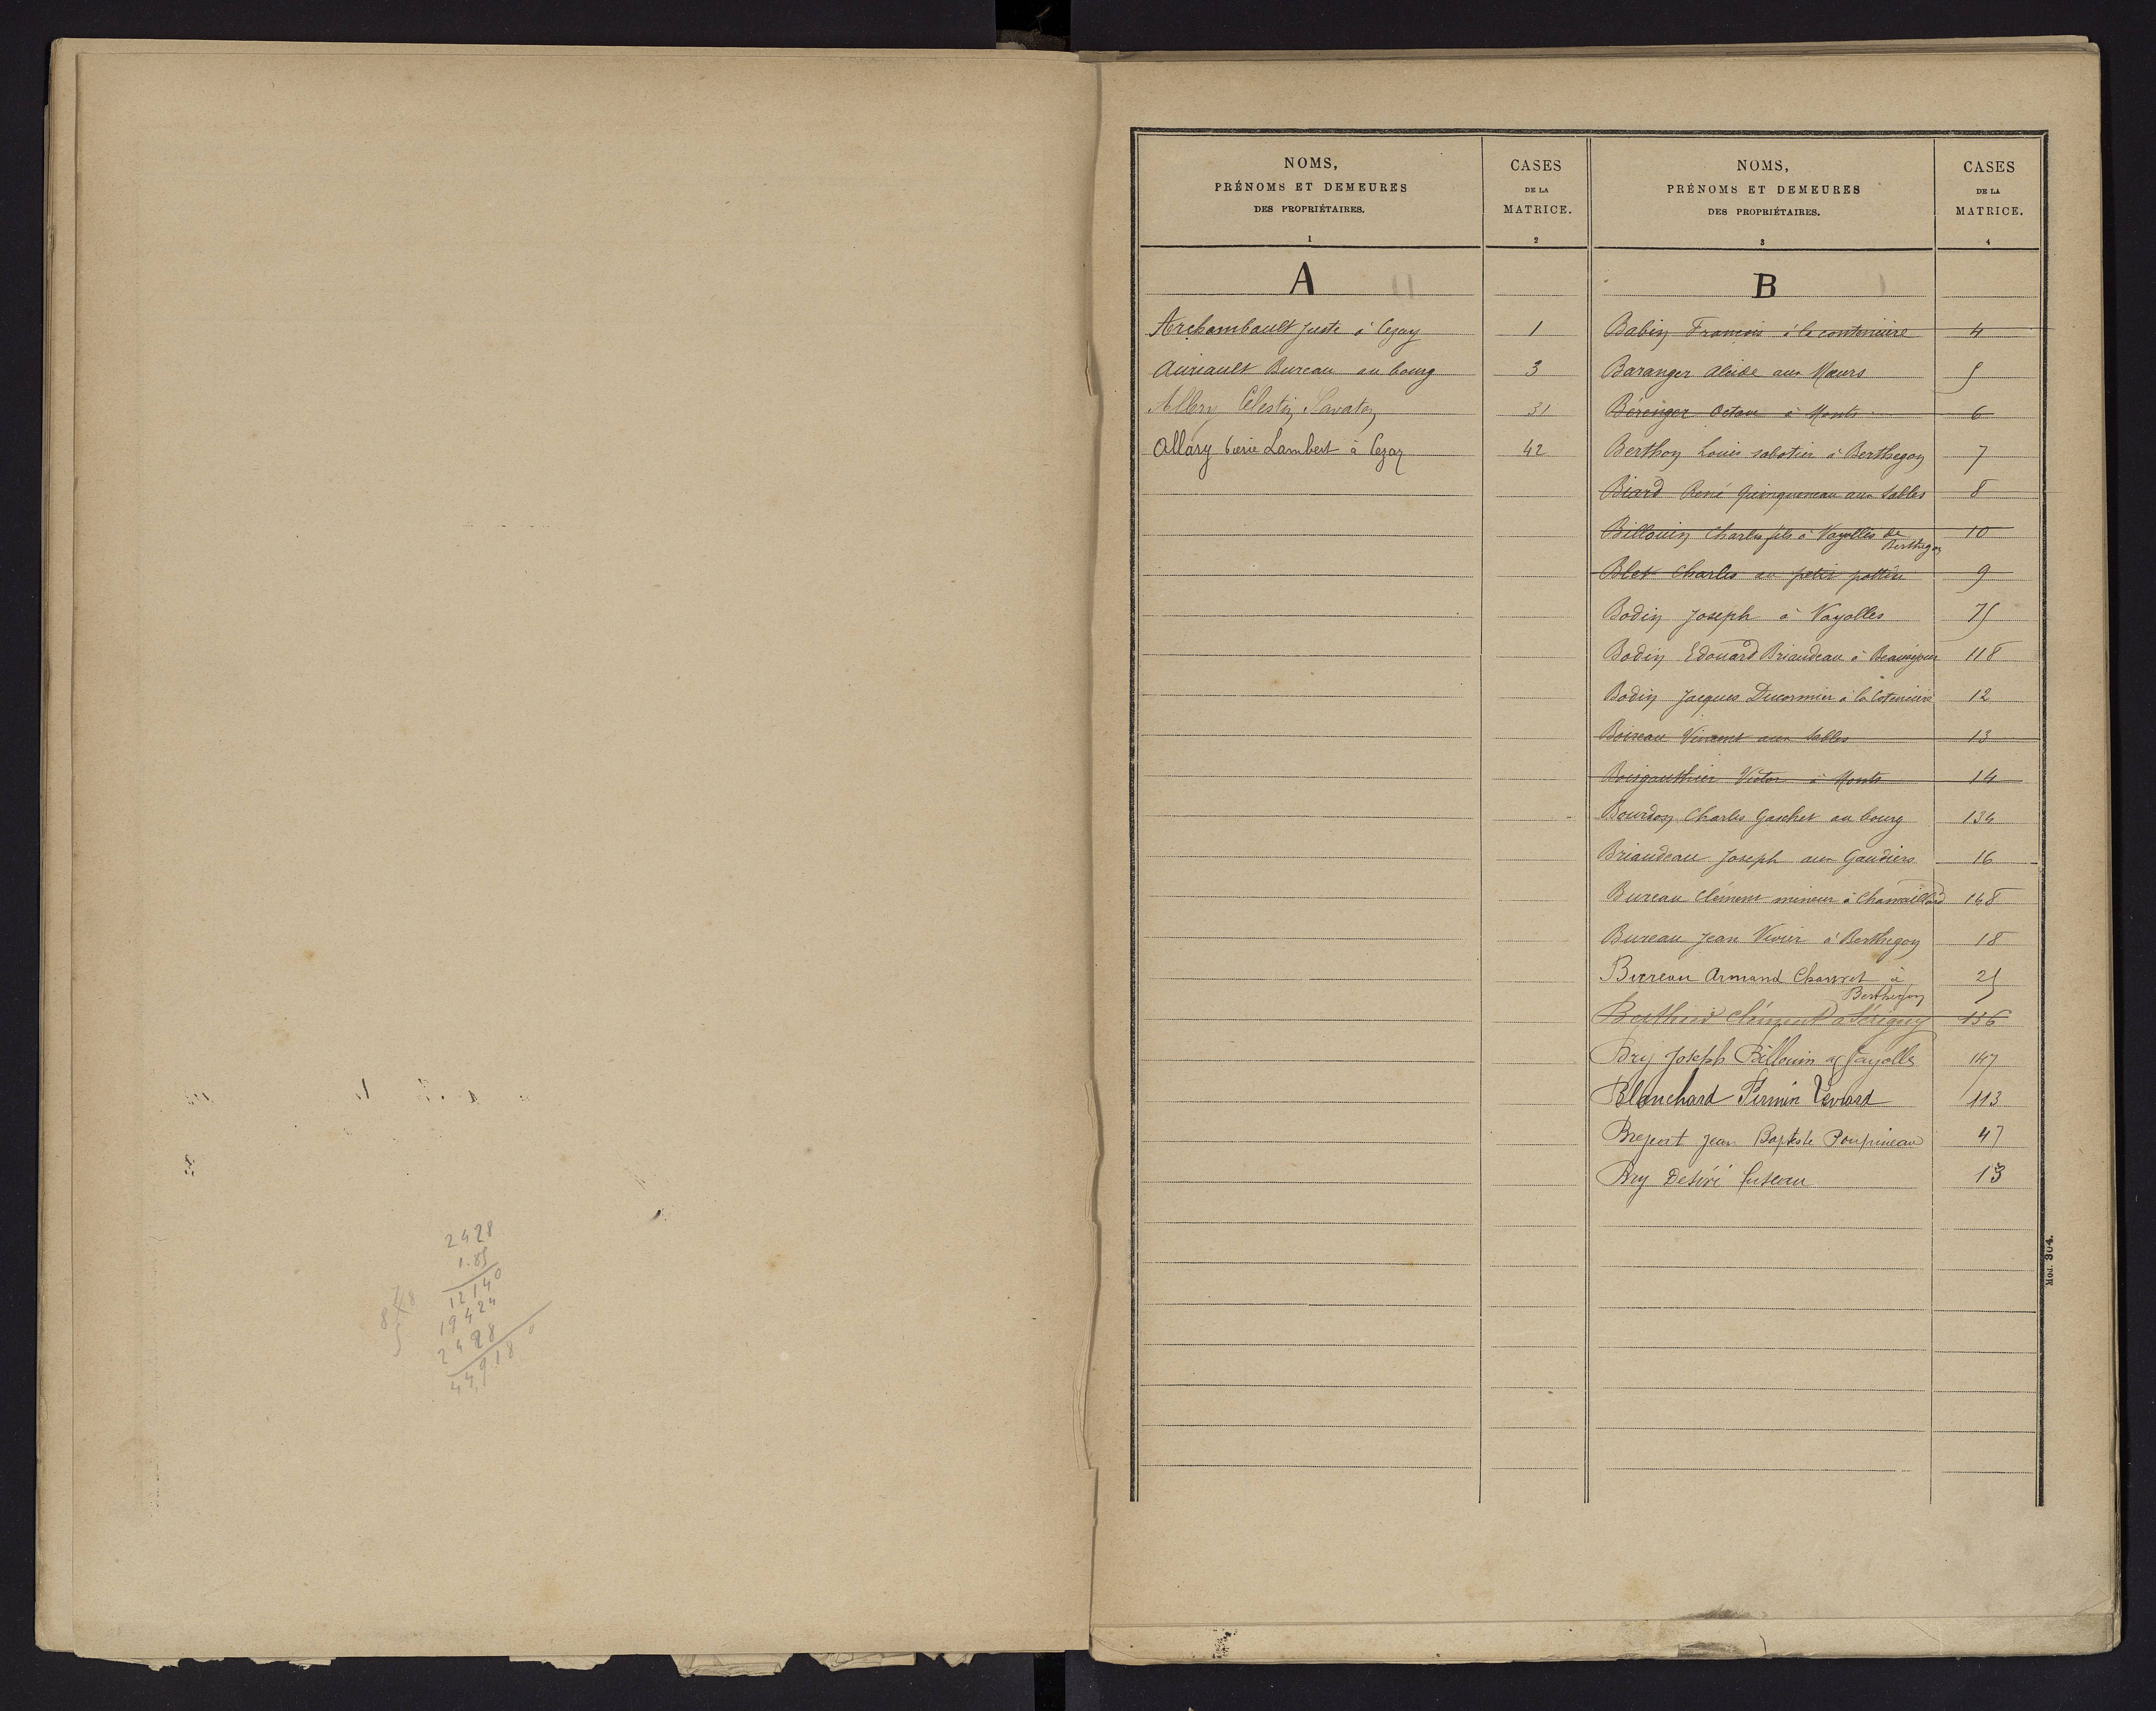 2428
1.85
12140
19424
2428
44,9180
8 8
5
NOMS,
PRÉNOMS ET DEMEURES
DES PROPRIÉTAIRES.
1
CASES
DE LA
MATRICE.
2
NOMS,
PRÉNOMS ET DEMEURES
DES PROPRIÉTAIRES.
3
CASES
DE LA
MATRICE.
4
A
Archambault Juste à Cezay 1
Auriault Bureau au bourg 3
Allery Célestin Savaton 31
Allary Lambert à Cezay 42
B
Babin François à la 4
Baranger Alcide aux Mœurs 5
Béranger Octave à Monts 6
Berthon Louis sabotier à Berthegon 7
Biard René Quinqueneau aux Sables 8
Billouin Charles fils à Vayolles de Berthegon 10
Blet Charles au petit 9
Bodin Joseph à Vayolles 75
Bodin Edouard Briandeau à 118
Bodin Jacques Ducormier à la 12
Boireau Vincent aux Sables 13
Boisgauthier Victor à Monts 14
Bourdon Charles Gaschet au bourg 134
Briandeau Joseph aux Gaudiers 16
Bureau Clément mineur à Chamaillard 168
Bureau Jean Vivier à Berthegon 18
Bureau Armand Chauvet à Berthegon 25
Clément à Sérigny 136
Bry Joseph Billouin à Vayolles 147
Blanchard Firmin 113
Jean Baptiste Poupineau 47
Bry Desiré fuseau 13
Mod. 304.